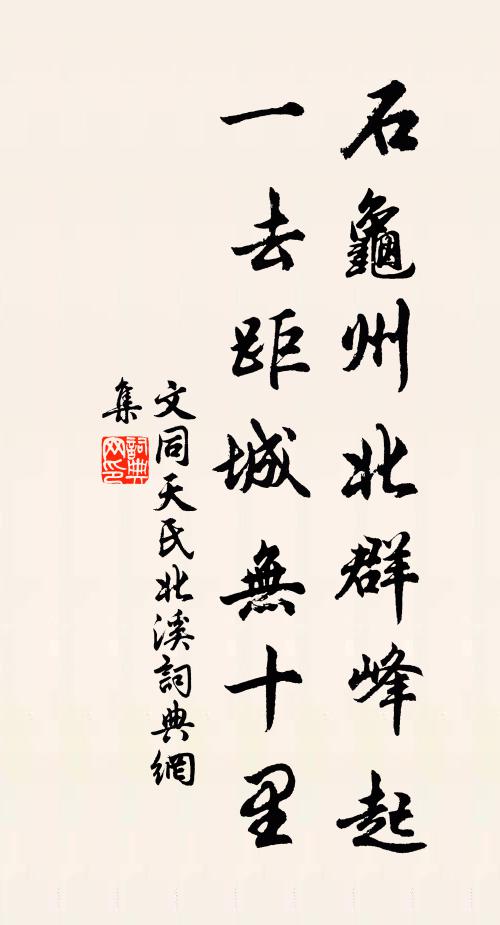 石龜州北群峰起
一去距城無十里
文同天民北溪詞典網
集
詞典網印